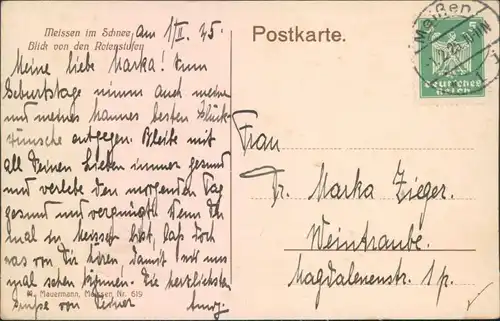 Meissen im Schnee
Blick von den Rotenstufen
am 1/II. 25.
Meine liebe Marka! Zum
Geburtstage nimm auch meine
und meines Mannes besten Glück-
wünsche entgegen. Bleibe mit
all Deinen Lieben immer gesund
und verlebe den morgenden Tag
gesund und vergnügt. Wenn Du
mal in Meissen bist, laß doch
was von Dir hören damit wir uns
mal sehen können. Die herzlichsten
Grüße von Deiner
M. Mauermann, Meissen Nr. 619
Postkarte.
Meißen
5
Deutsches
Reich
Frau
Dr. Marka Zieger.
Weintraube.
Magdalenenstr. 1 p.